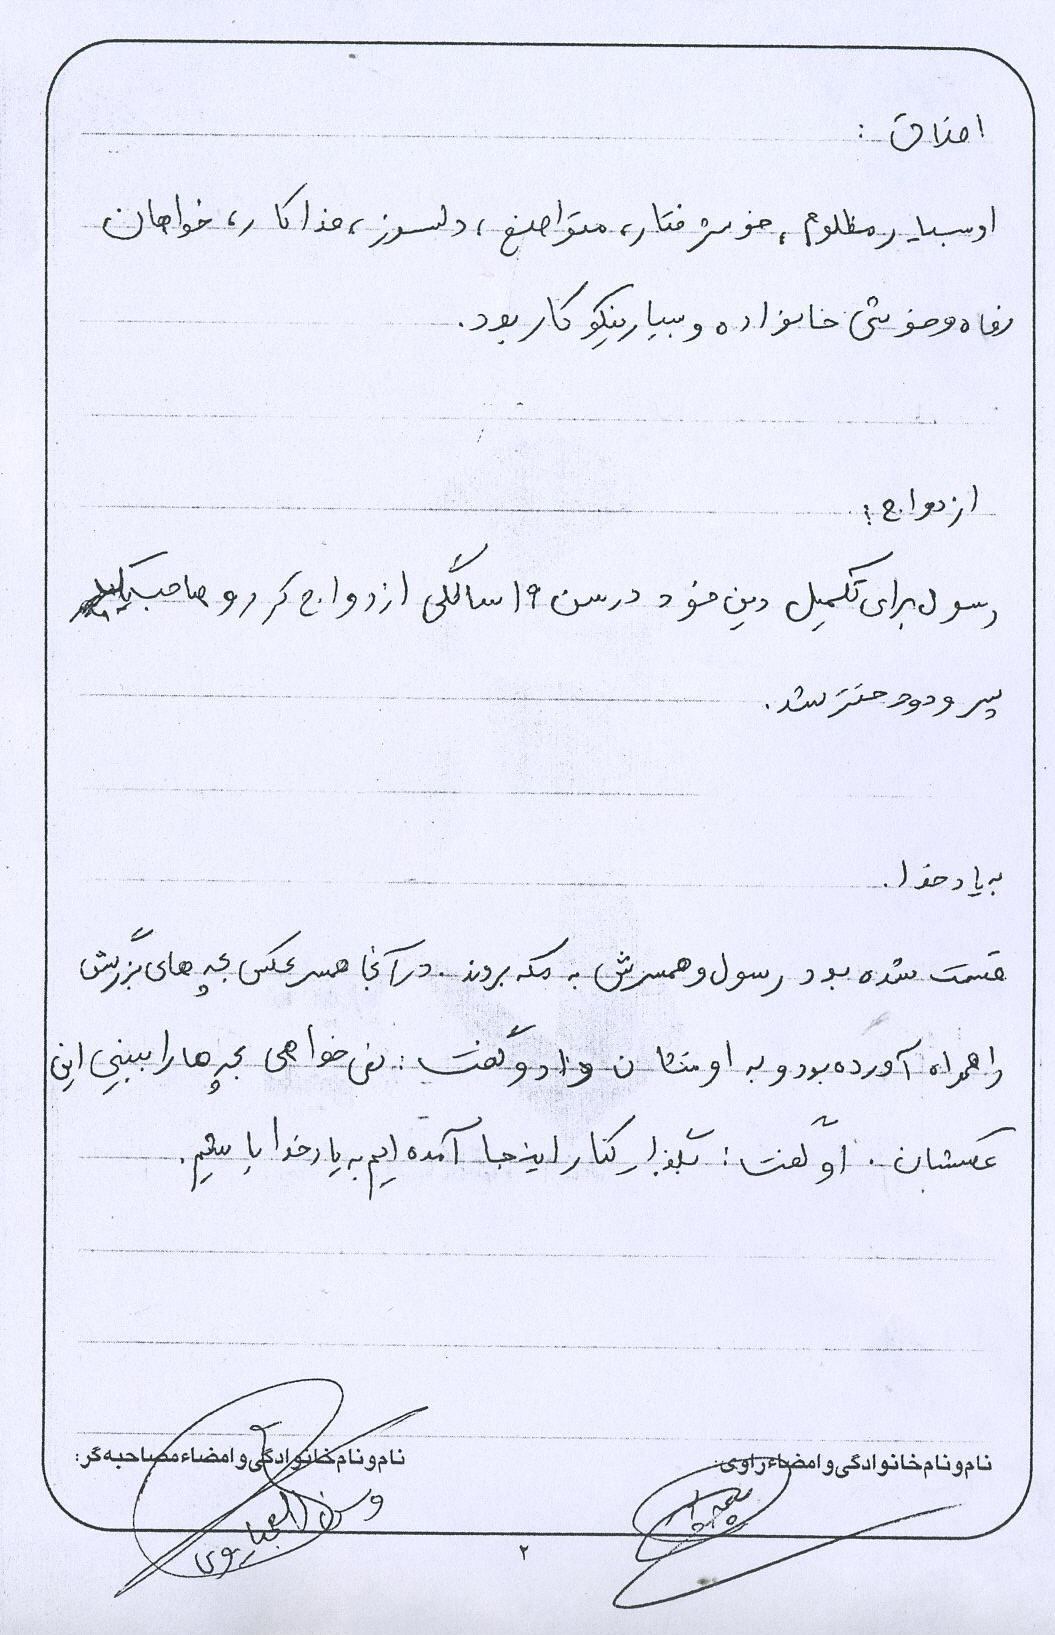 اخلاق :
او بسیار مظلوم، خوش رفتار، متواضع، دلسوز، فداکار، خواهان
رفاه و خوشی خانواده و بسیار نیکوکار بود.
ازدواج :
رسول برای تکمیل دین خود در سن ۱۹ سالگی ازدواج کرد و صاحب یک
پسر و دو دختر شد.
به یاد خدا.
قسمت شده بود رسول و همسرش به مکه بروند. در آنجا همسر عکس بچه های بزرگش
را همراه آورده بود و به او نشان داد و گفت : نمی خواهی بچه ها را ببینی این
عکسشان. او گفت : بگذار کنار اینجا آمده ایم به یاد خدا باشیم.
نام و نام خانوادگی و امضاء راوی:
نام و نام خانوادگی و امضاء مصاحبه گر:
۲